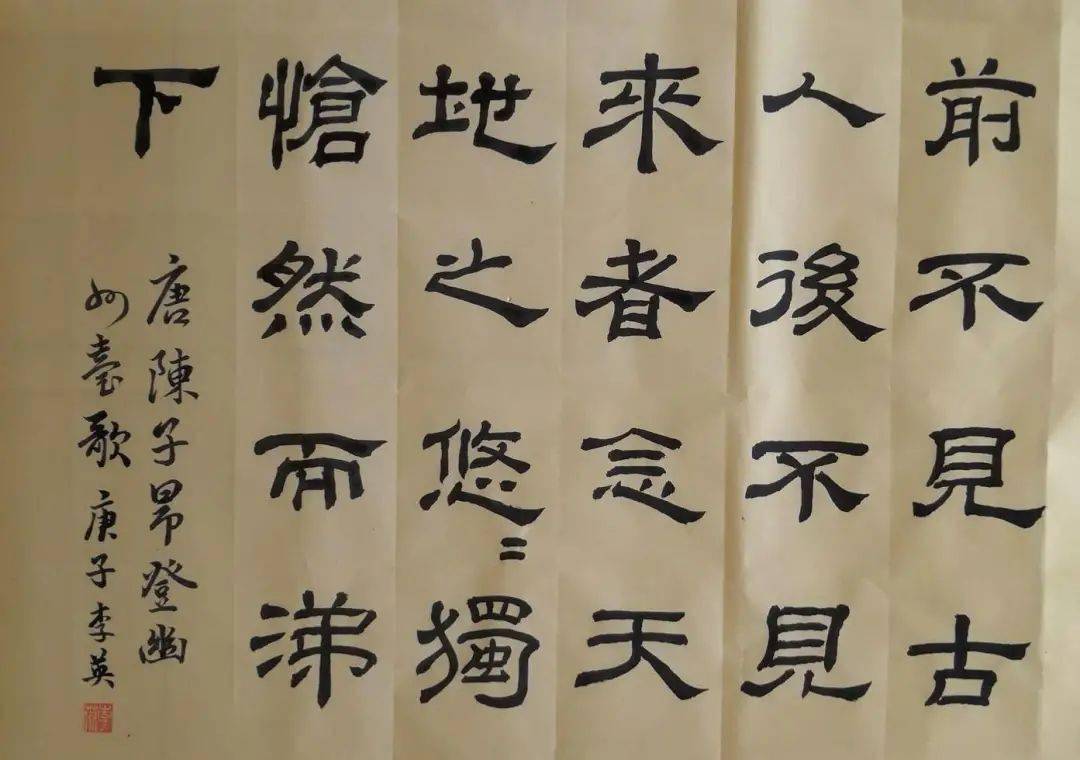 前不見古
人後不見
來者念天
地之悠〻獨
愴然而涕
下
唐陳子昂登幽
州臺歌 庚子李英